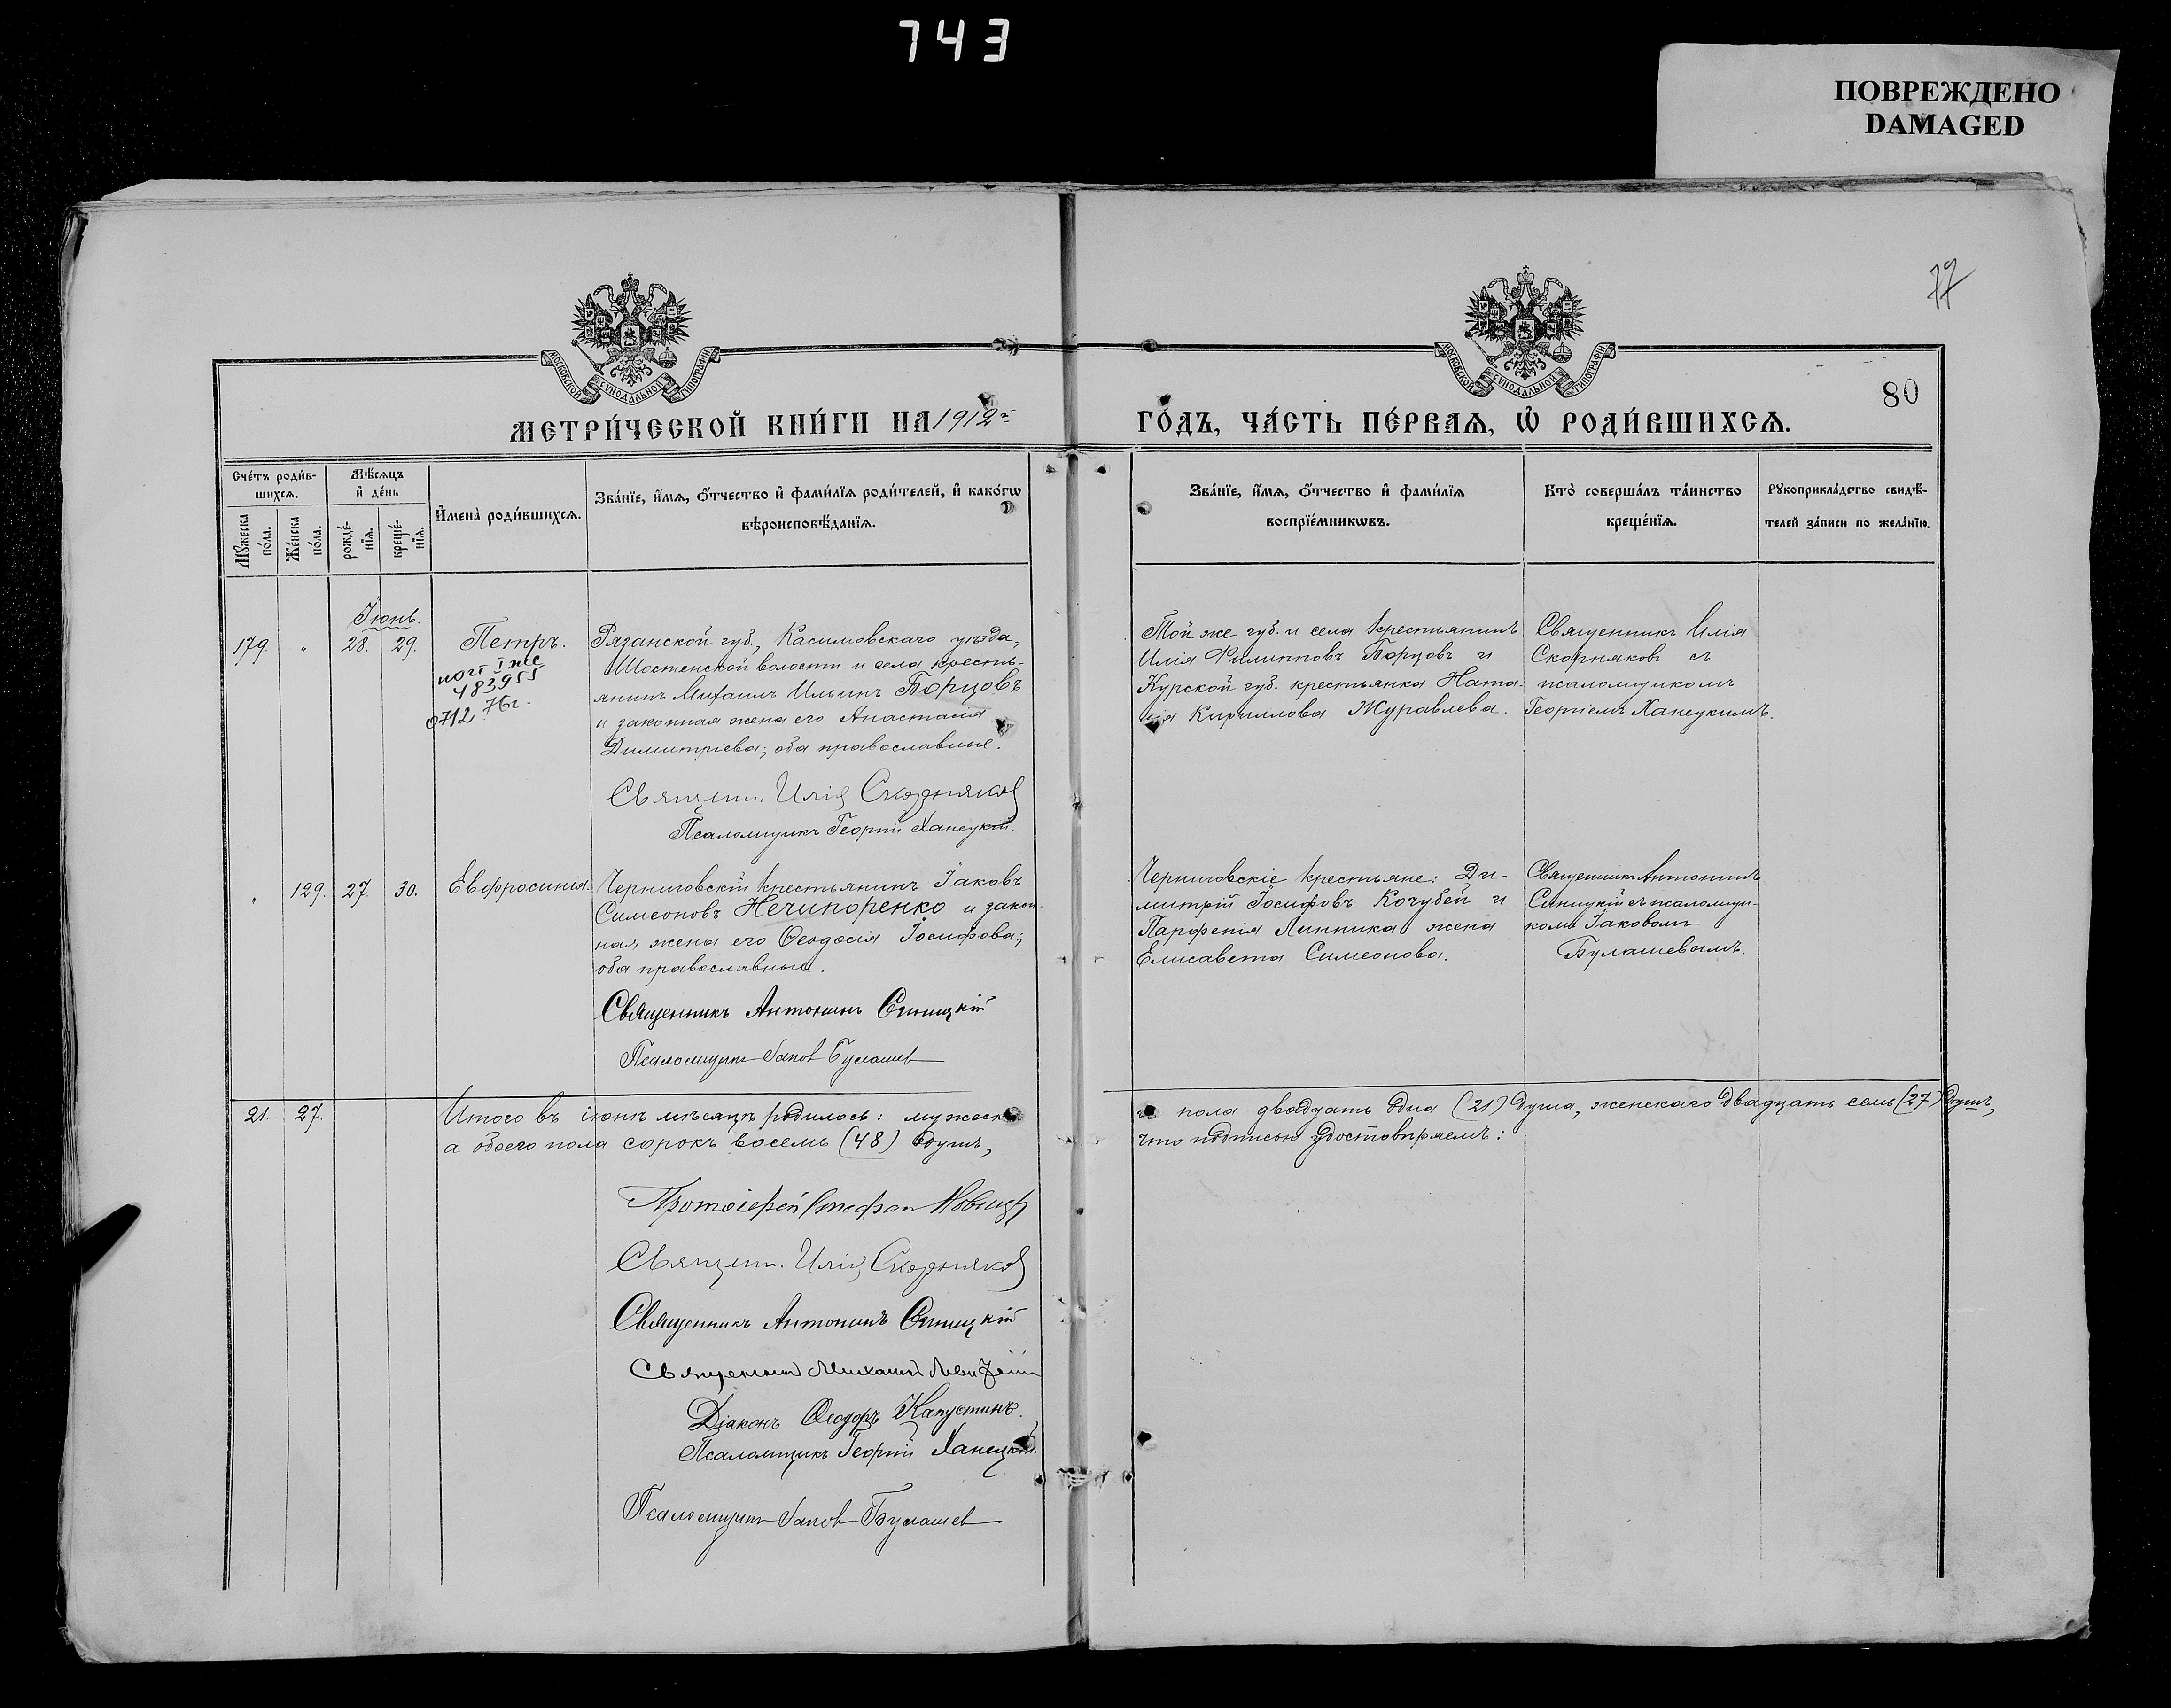 743
ПОВРЕЖДЕНО
DAMAGED
77
80
МОСКОВСКОЙ СѴНОДАЛЬНОЙ ТИПОГРАФІИ
МОСКОВСКОЙ СѴНОДАЛЬНОЙ ТИПОГРАФІИ
МЕТРИ́ЧЕСКОЙ КНИ́ГИ НА 1912 й
ГО́ДЪ, ЧА́СТЬ ПЕ́РВАѦ, Ѡ҆ РОДИ́ВШИХСѦ.
Сче́тъ роди́в-
шихсѧ.
Мꙋ́жеска по́ла.
Же́нска по́ла.
Мѣ́сѧцъ
и҆ де́нь
рожде́-
нїѧ.
креще́-
нїѧ.
И҆мена̀ роди́вшихсѧ.
Зва́нїе, и҆́мѧ, ѻ҆́тчество и҆ фами́лїѧ роди́телей, и҆ како́гѡ
вѣроисповѣ́данїѧ.
Зва́нїе, и҆́мѧ, ѻ҆́тчество и҆ фами́лїѧ
воспрїе́мникѡвъ.
Кто̀ соверша́лъ та́инство
креще́нїѧ.
Рꙋкоприкла́дство свидѣ́-
телей за́писи по жела́нїю.
Іюнь.
179. " 28. 29. Петръ.
483955
0712 76г.
Рязанской губ., Касимовскаго уѣзда,
Шостенской волости и села кресть-
янинъ Михаилъ Ильинъ Борцовъ
и законная жена его Анастасія
Димитріева; оба православные.
Священ. Илія Скорняковъ
Псаломщикъ Георгій Ханецкій.
Той же губ. и села крестьянинъ
Илія Филипповъ Борцовъ и
Курской губ. крестьянка Ната-
лія Кириллова Журавлева.
Священникъ Илія
Скорняковъ съ
псаломщикомъ
Георгіемъ Ханецкимъ.
" 129. 27. 30. Евфросинія.
Черниговскій крестьянинъ Іаковъ
Симеоновъ Нечипоренко и закон-
ная жена его Ѳеодосія Іосифова;
оба православные.
Священникъ Антонинъ Синицкій
Псаломщикъ Іаковъ Булашев
Черниговскіе крестьяне: Ди-
митрій Іосифовъ Кочубей и
Парфенія Линника жена
Елисавета Симеонова.
Священникъ Антонинъ
Синицкій съ псаломщи-
комъ Іаковомъ
Булашевымъ.
21. 27. Итого въ іюнѣ мѣсяцѣ родилось: мужеска
го пола двадцать одна (21) душа, женскаго двадцать семь (27) душъ,
а обоего пола сорокъ восемь (48) душъ,
что подписью удостовѣряемъ:
Протоіерей Стефан
Священ. Илія Скорняковъ
Священникъ Антонинъ Синицкій
Священникъ Михаилъ
Діаконъ Ѳеодоръ Капустинъ.
Псаломщикъ Георгій Ханецкій.
Псаломщикъ Іаковъ Булашев